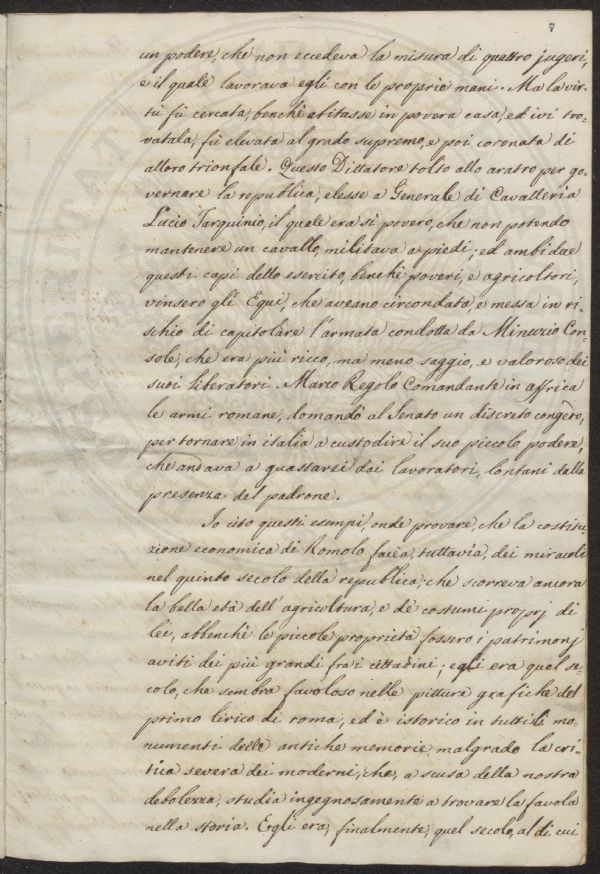 7
un podere, che non eccedeva la misura di quattro jugeri,
e il quale lavorava egli con le proprie mani. Ma la vir-
tù fù cercata, benchè abitasse in povera casa, ed ivi tro-
vatala, fù elevata al grado supremo, e poi coronata di
alloro trionfale. Questo Dittatore tolto allo aratro per go-
vernare la republica, elesse a Generale di Cavalleria
Lucio Tarquinio, il quale era sì povero, che non potendo
mantenere un cavallo, militava a piedi; ed ambidue
questi capi dello esercito, benchè poveri, e agricoltori,
vinsero gli Equi, che aveano circondata, e messa in ri-
schio di capitolare l'armata condotta da Minuzio Con-
sole, che era più ricco, ma meno saggio, e valoroso dei
suoi liberatori. Marco Regolo Comandante in affrica
le armi romane, domandò al Senato un discreto congèro,
per tornare in italia a custodire il suo piccolo podere,
che andava a guastarsi dai lavoratori, lontani dalla
presenza del padrone.
Io cito questi esempi, onde provare, che la costitu-
zione economica di Romolo facèa, tuttavia, dei miracoli
nel quinto secolo della republica, che scorreva ancora
la bella età dell'agricoltura, e de' costumi proprj di
lei, abbenchè le piccole proprietà fossero i patrimonj
aviti dei più grandi fra i cittadini; egli era quel se-
colo, che sembra favoloso nelle pitture grafiche del
primo lirico di roma, ed è istorico in tutti li mo-
numenti delle antiche memorie, malgrado la cri-
tica severa dei moderni, che, a scusa della nostra
debolezza, studia ingegnosamente a trovare la favola
nella storia. Egli era, finalmente, quel secolo, al di cui